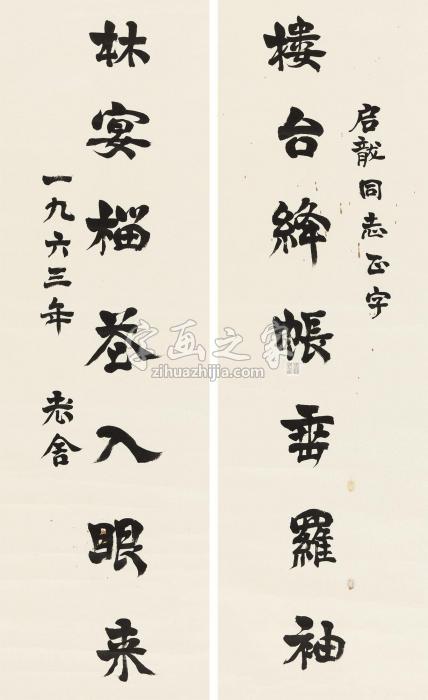 启龍同志正字
樓台絳帳垂羅袖
林宴榴花入眼来
一九六三年 老舍
字画之家
zihuazhijia.com